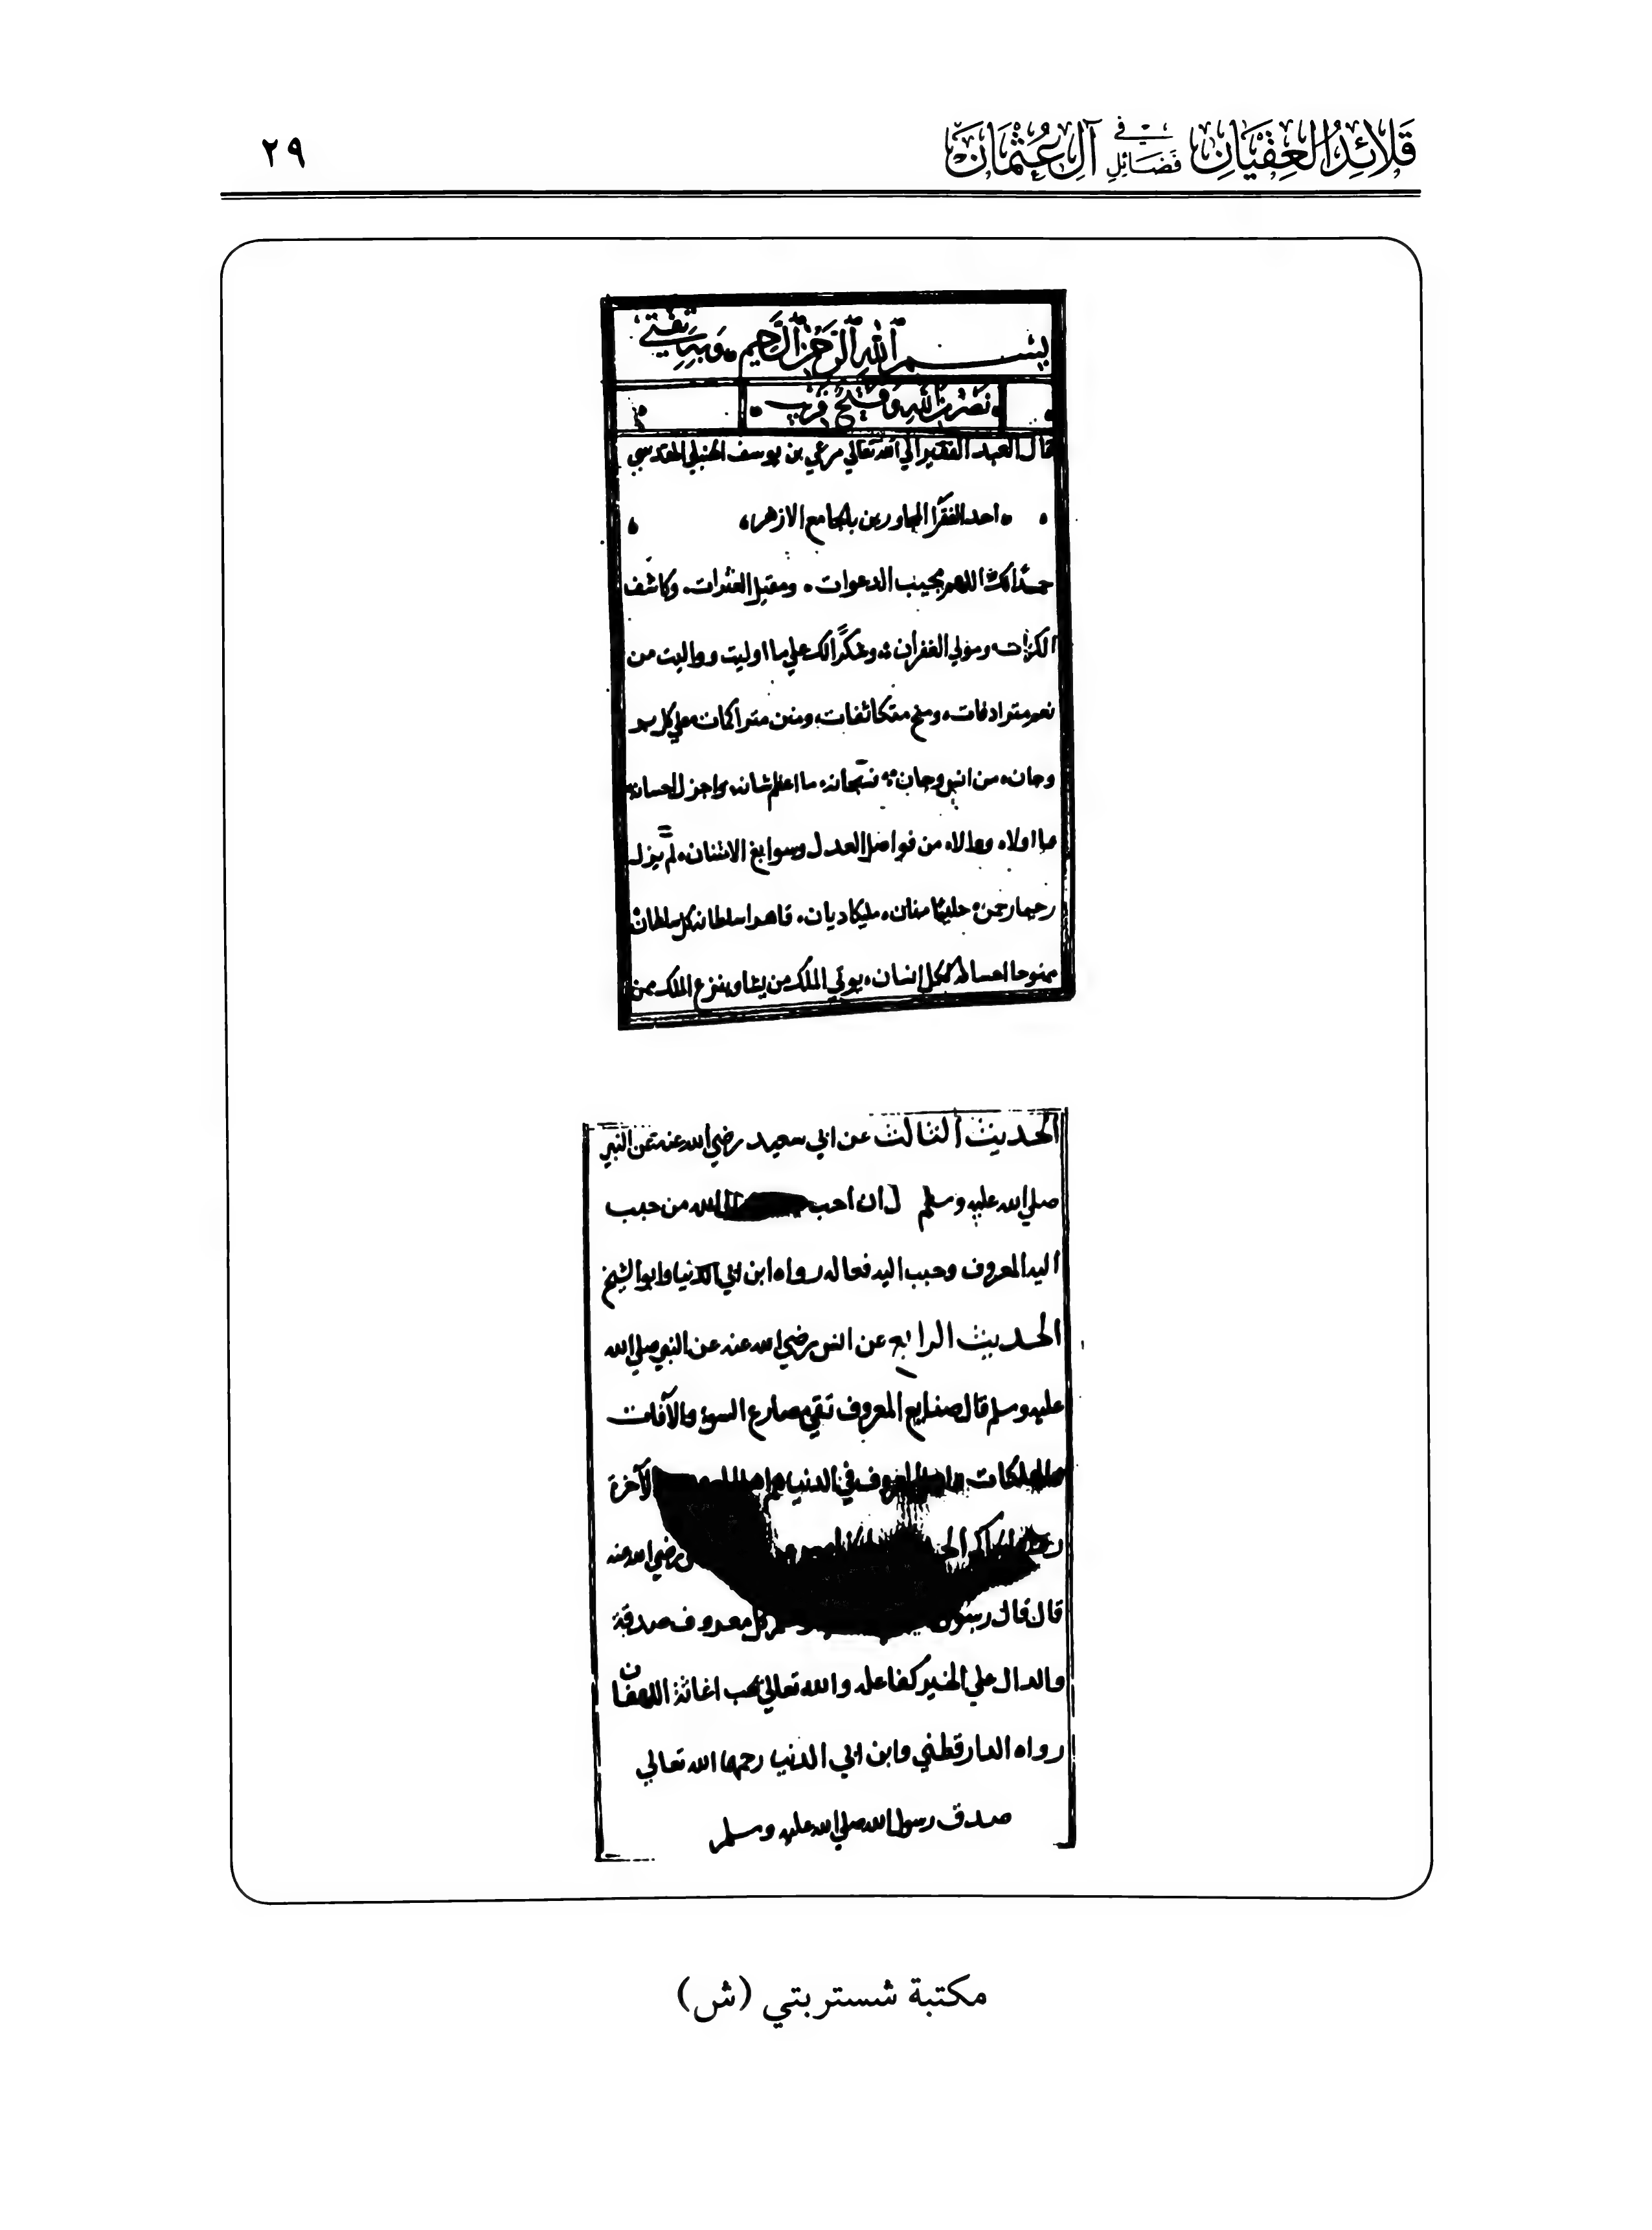 قَلَائِدُ العِقْيَانِ فِي فَضَائِلِ آلِ عُثْمَانَ
٢٩
بسم الله الرحمن الرحيم وبه ثقتي
نصر من الله وفتح قريب
قال العبد الفقير الي الله تعالي مرعي بن يوسف الحنبلي المقدسي
احد الفقرا المجاورين بالجامع الازهر
حمدًا لك اللهم مجيب الدعوات ومقيل العثرات وكاشف
الكربات ومولي الغفران وشكرًا لك علي ما اوليت وواليت من
نعم مترادفات ومنح متكاثفات ومنن متراكمات علي كل
وجان من انس وجان سبحانه ما اعظم شانه واجزل احسانه
ما اولاه ووالاه من فواضل العدل وسوابغ الامتنان لم يزل
رحيما رحمن حليمًا منان مليكا ديان قاهرا سلطانه كل سلطان
ممنوحا احسانه لكل انسان يوتي الملك من يشا وينزع الملك ممن
الحديث الثالث عن ابي سعيد رضي الله عنه عن النبي
صلي الله عليه وسلم ان احب الي الله من حبب
اليه المعروف وحبب اليه فعاله رواه ابن ابي الدنيا وابو الشيخ
الحديث الرابع عن انس رضي الله عنه عن النبي صلي الله
عليه وسلم قال صنايع المعروف تقي مصارع السوء والآفات
والهلكات واهل المعروف في الدنيا هم اهل الآخرة
رضي الله عنه
قال قال رسول كل معروف صدقة
والدال علي الخير كفاعله والله تعالي يحب اغاثة اللهفان
رواه الدارقطني وابن ابي الدنيا رحمهما الله تعالي
صدق رسول الله صلي الله عليه وسلم
مكتبة شستربتي (ش)